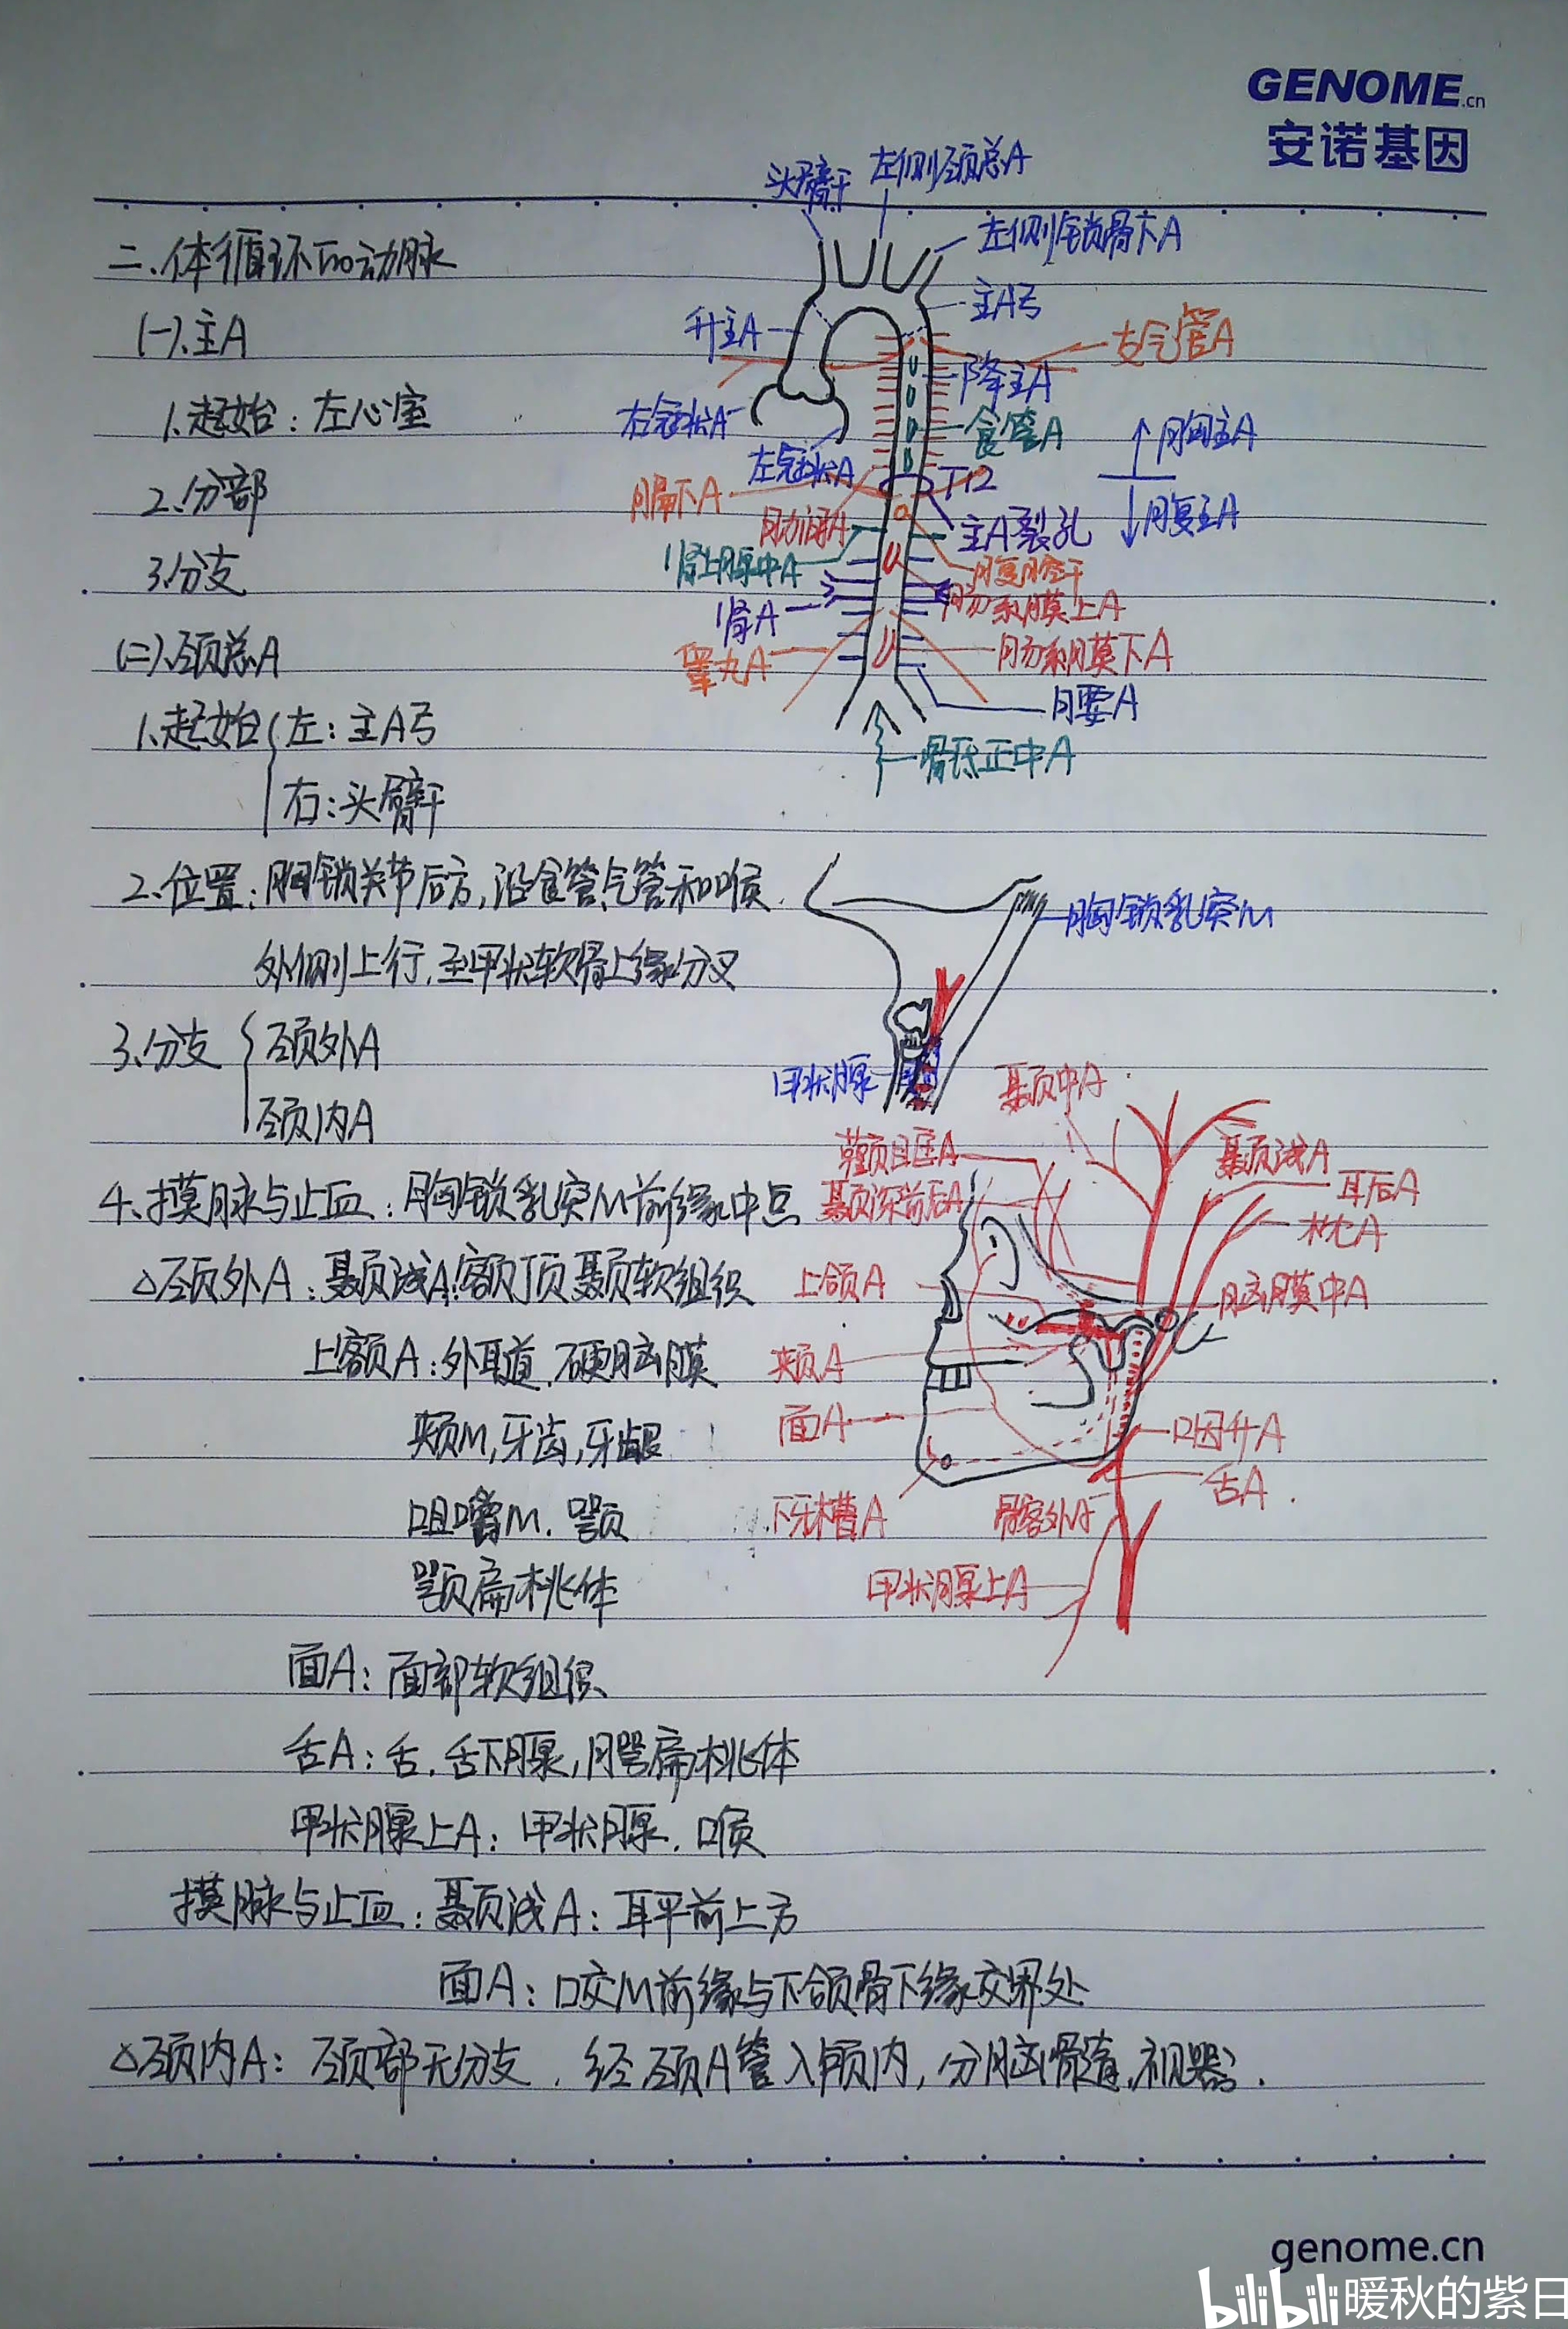 GENOME.cn
安诺基因
头臂干
左侧颈总A
左侧锁骨下A
二、体循环的动脉
主A弓
(一)、主A
升主A
支气管A
降主A
1、起始：左心室
右冠状A
食管A
胸主A
左冠状A
T12
2、分部
膈下A
腹主A
肋间A
主A裂孔
3、分支
肾上腺中A
腹腔干
肠系膜上A
肾A
(二)、颈总A
睾丸A
肠系膜下A
腰A
1、起始 左：主A弓
骶正中A
右：头臂干
2、位置：胸锁关节后方，沿食管、气管和喉
胸锁乳突M
外侧上行，至甲状软骨上缘分叉
3、分支 颈外A
甲状腺
颞中A
颈内A
颧眶A
颞浅A
4、摸脉与止血：胸锁乳突M前缘中点
颞深前后A
耳后A
枕A
△颈外A：颞浅A：额顶颞软组织
上颌A
脑膜中A
上额A：外耳道，硬脑膜
颊A
颊M，牙齿，牙龈
面A
咽升A
舌A
咀嚼M，颚
下牙槽A
甲状腺上A
颚扁桃体
面A：面部软组织
舌A：舌，舌下腺，腭扁桃体
甲状腺上A：甲状腺，喉
摸脉与止血：颞浅A：耳平前上方
面A：咬M前缘与下颌骨下缘交界处
△颈内A：颈部无分支，经颈A管入颅内，分脑脊髓，视器。
genome.cn
bilibili 暖秋的紫日